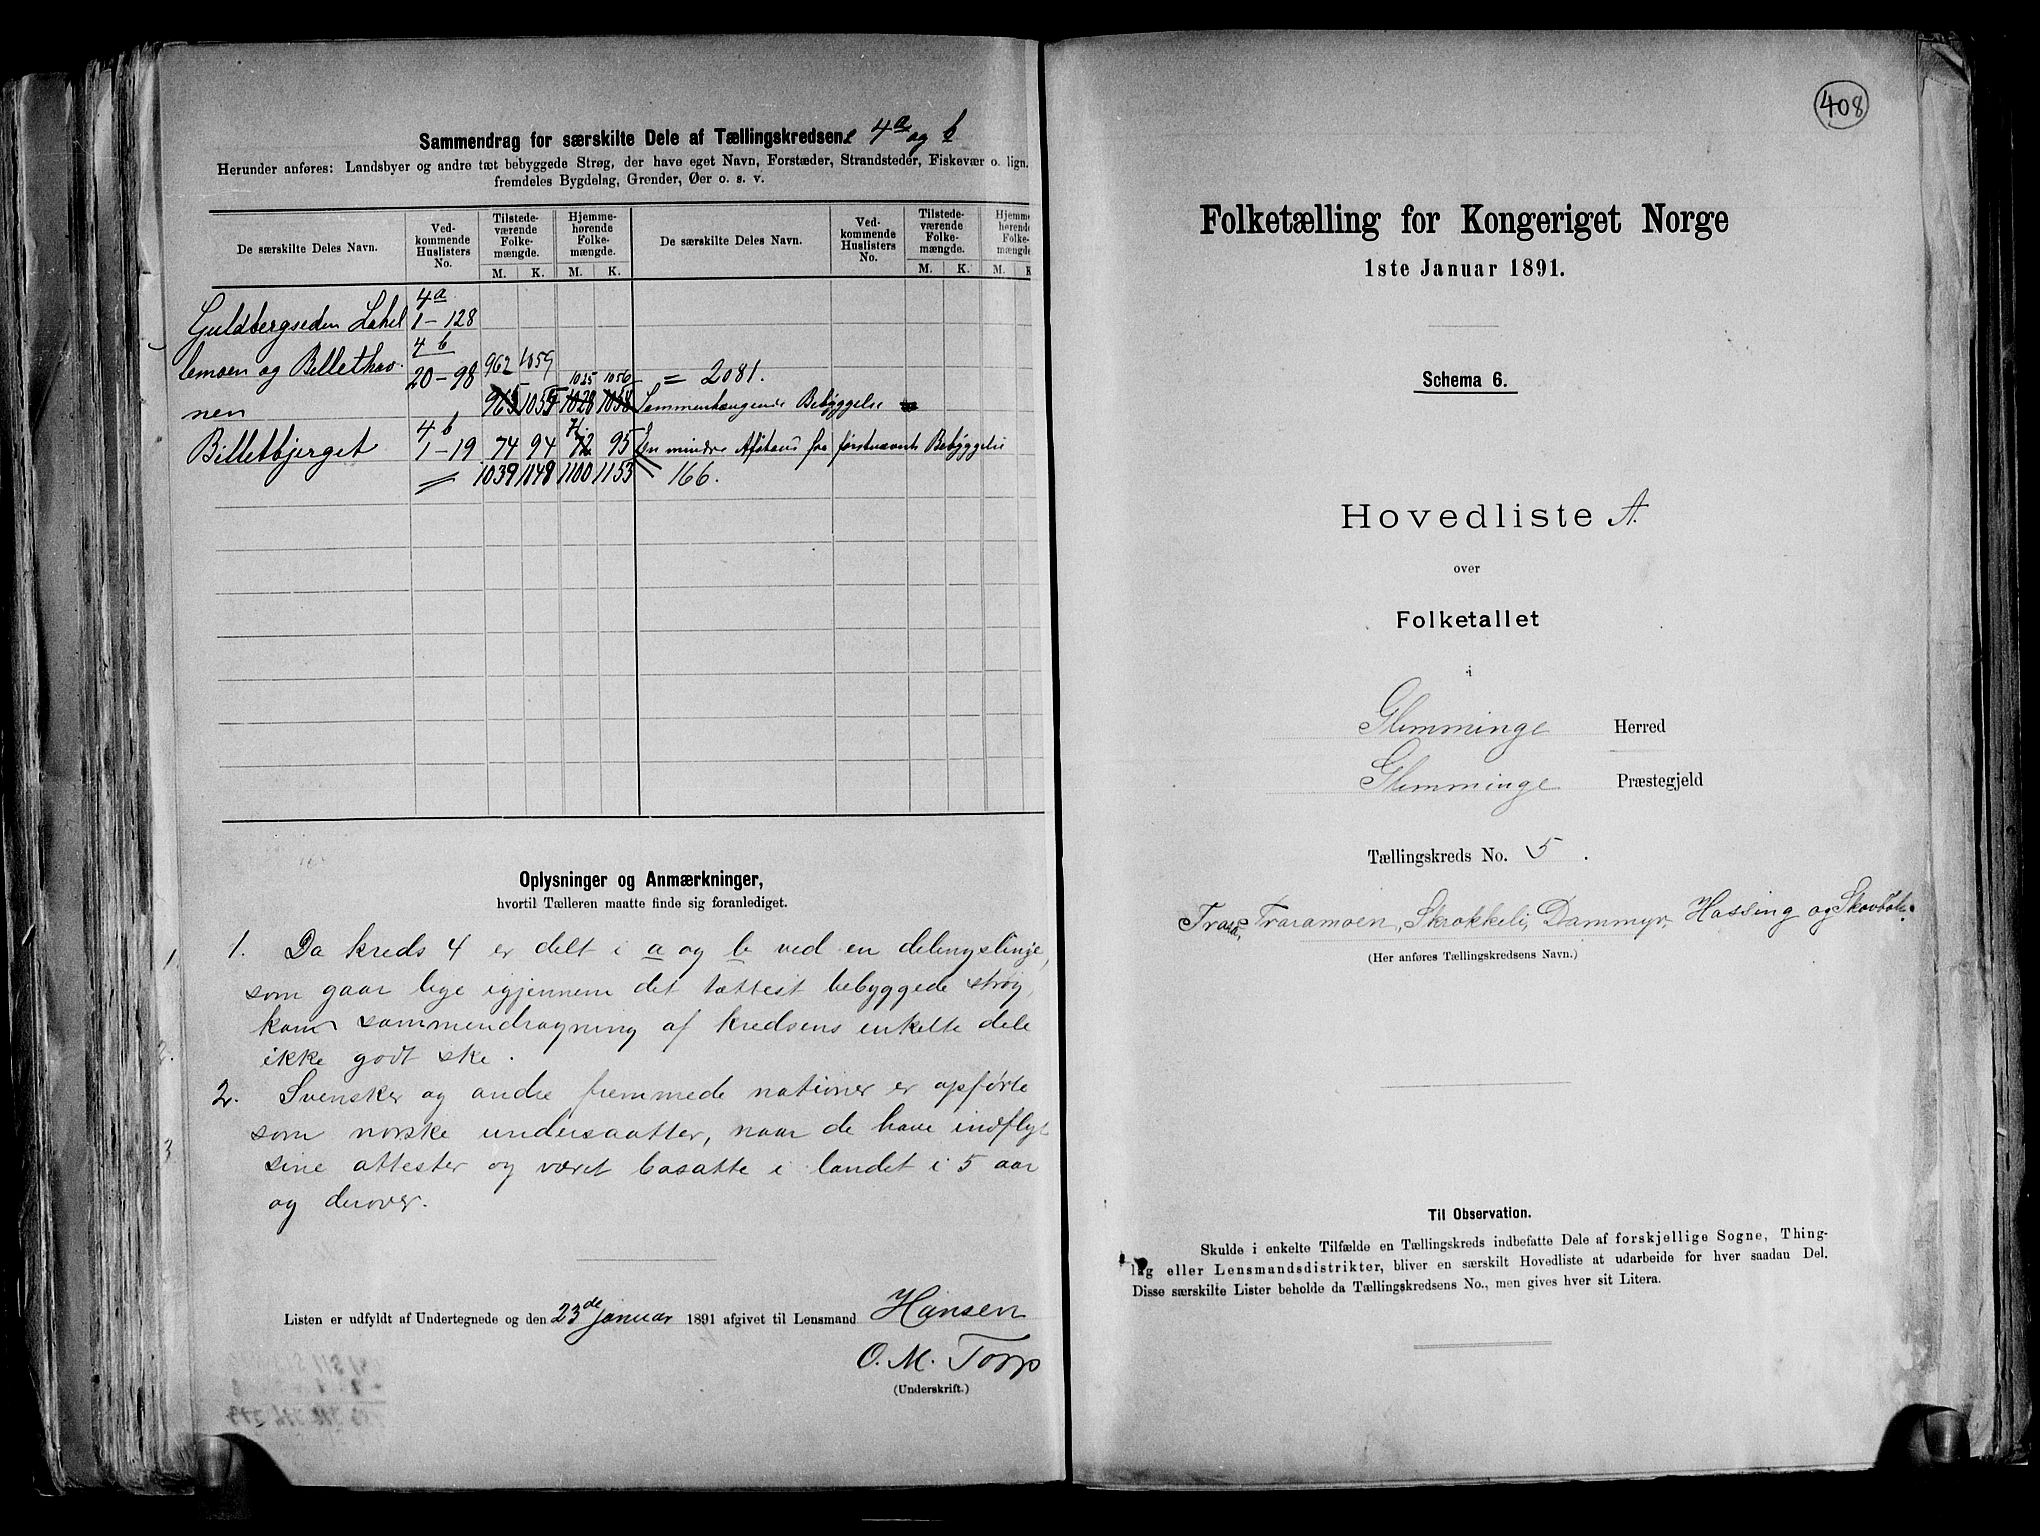 Sammendrag for særskilte Dele af Tællingskredsene 4a og b
Herunder anføres: Landsbyer og andre tæt bebyggede Strøg, der have eget Navn, Forstæder, Strandsteder, Fiskevær o. lign.
fremdeles Bygdelag, Grender, Øer o. s. v.
De særskilte Deles Navn. Ved-kommende Huslisters No. Tilstede-værende Folke-mængde. Hjemme-hørende Folke-mængde. De særskilte Deles Navn. Ved-kommende Huslisters No. Tilstede-værende Folke-mængde. Hjemme-hørende Folke-mængde.
M. K. M. K. M. K. M. K.
4a
Guldbergseden Lahel 1-128
4b 962 1059
lemoen og Billethav 20-98 1025 1056 = 2081.
nen 965 1055 1028 1058 Sammenhængende Bebyggelse
4b
Billetbjerget 1-19 74 94 72 95 En mindre Afstand fra førstnævnte Bebyggelse
1039 1149 1100 1153 166.
Oplysninger og Anmærkninger,
hvortil Tælleren maatte finde sig foranlediget.
1. Da kreds 4 er delt i a og b ved en delingslinje,
som gaar lige igjennem det tættest bebyggede strøg,
kan sammendragning af kredsens enkelte dele
ikke godt ske.
2. Svensker og andre fremmede nationer er opførte
som norske undersaatter, naar de have indflyt
sine attester og været bosatte i landet i 5 aar
og derover.
Listen er udfyldt af Undertegnede og den 23de januar 1891 afgivet til Lensmand Hansen
O. M. Torp
(Underskrift.)
408
Folketælling for Kongeriget Norge
1ste Januar 1891.
Schema 6.
Hovedliste A.
over
Folketallet
i
Glemminge Herred
Glemminge Præstegjeld
Tællingskreds No. 5.
Trara, Traramoen, Skrokkeli, Dammyr, Hassing og Skovbøle.
(Her anføres Tællingskredsens Navn.)
Til Observation.
Skulde i enkelte Tilfælde en Tællingskreds indbefatte Dele af forskjellige Sogne, Thing-
lag eller Lensmandsdistrikter, bliver en særskilt Hovedliste at udarbeide for hver saadan Del.
Disse særskilte Lister beholde da Tællingskredsens No., men gives hver sit Litera.